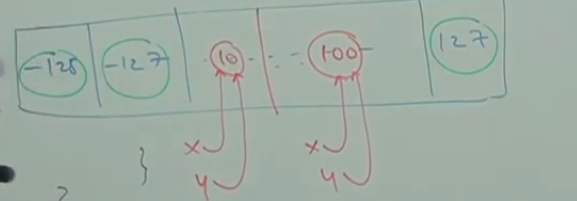 -128 -127 10 - - - 100 - 127
} x x
y y